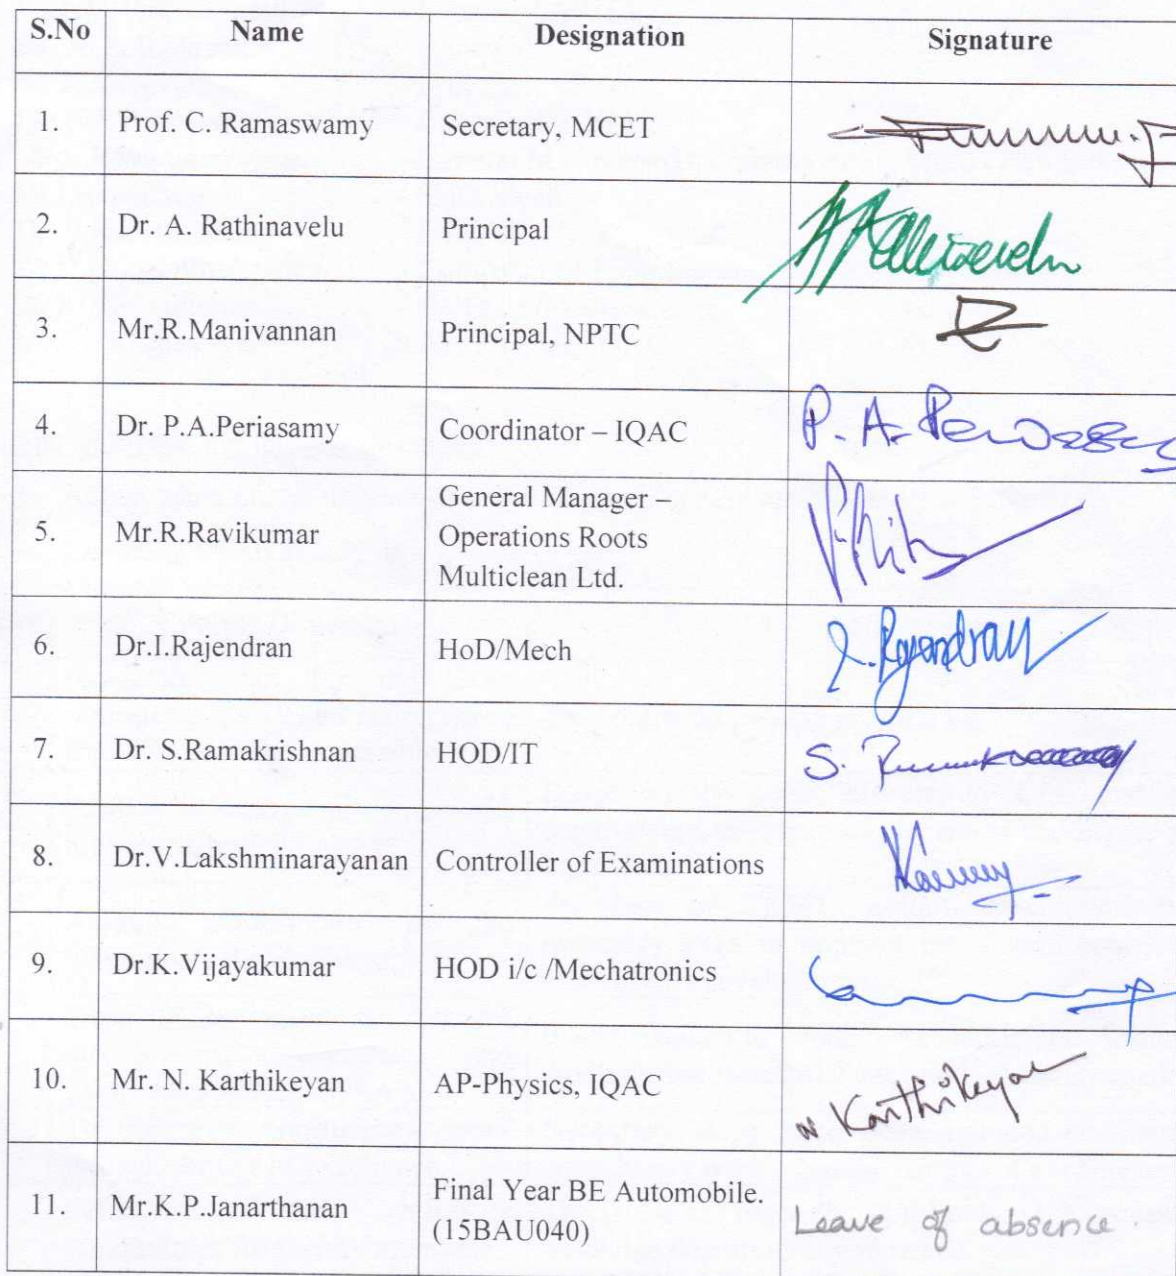 S.No Name Designation Signature
1. Prof. C. Ramaswamy Secretary, MCET
2. Dr. A. Rathinavelu Principal
3. Mr.R.Manivannan Principal, NPTC
4. Dr. P.A.Periasamy Coordinator – IQAC P. A.
General Manager –
5. Mr.R.Ravikumar Operations Roots
Multiclean Ltd.
6. Dr.I.Rajendran HoD/Mech I. Rajendran
7. Dr. S.Ramakrishnan HOD/IT S.
8. Dr.V.Lakshminarayanan Controller of Examinations
9. Dr.K.Vijayakumar HOD i/c /Mechatronics
10. Mr. N. Karthikeyan AP-Physics, IQAC N Karthikeyan
11. Mr.K.P.Janarthanan Final Year BE Automobile.
(15BAU040) Leave of absence